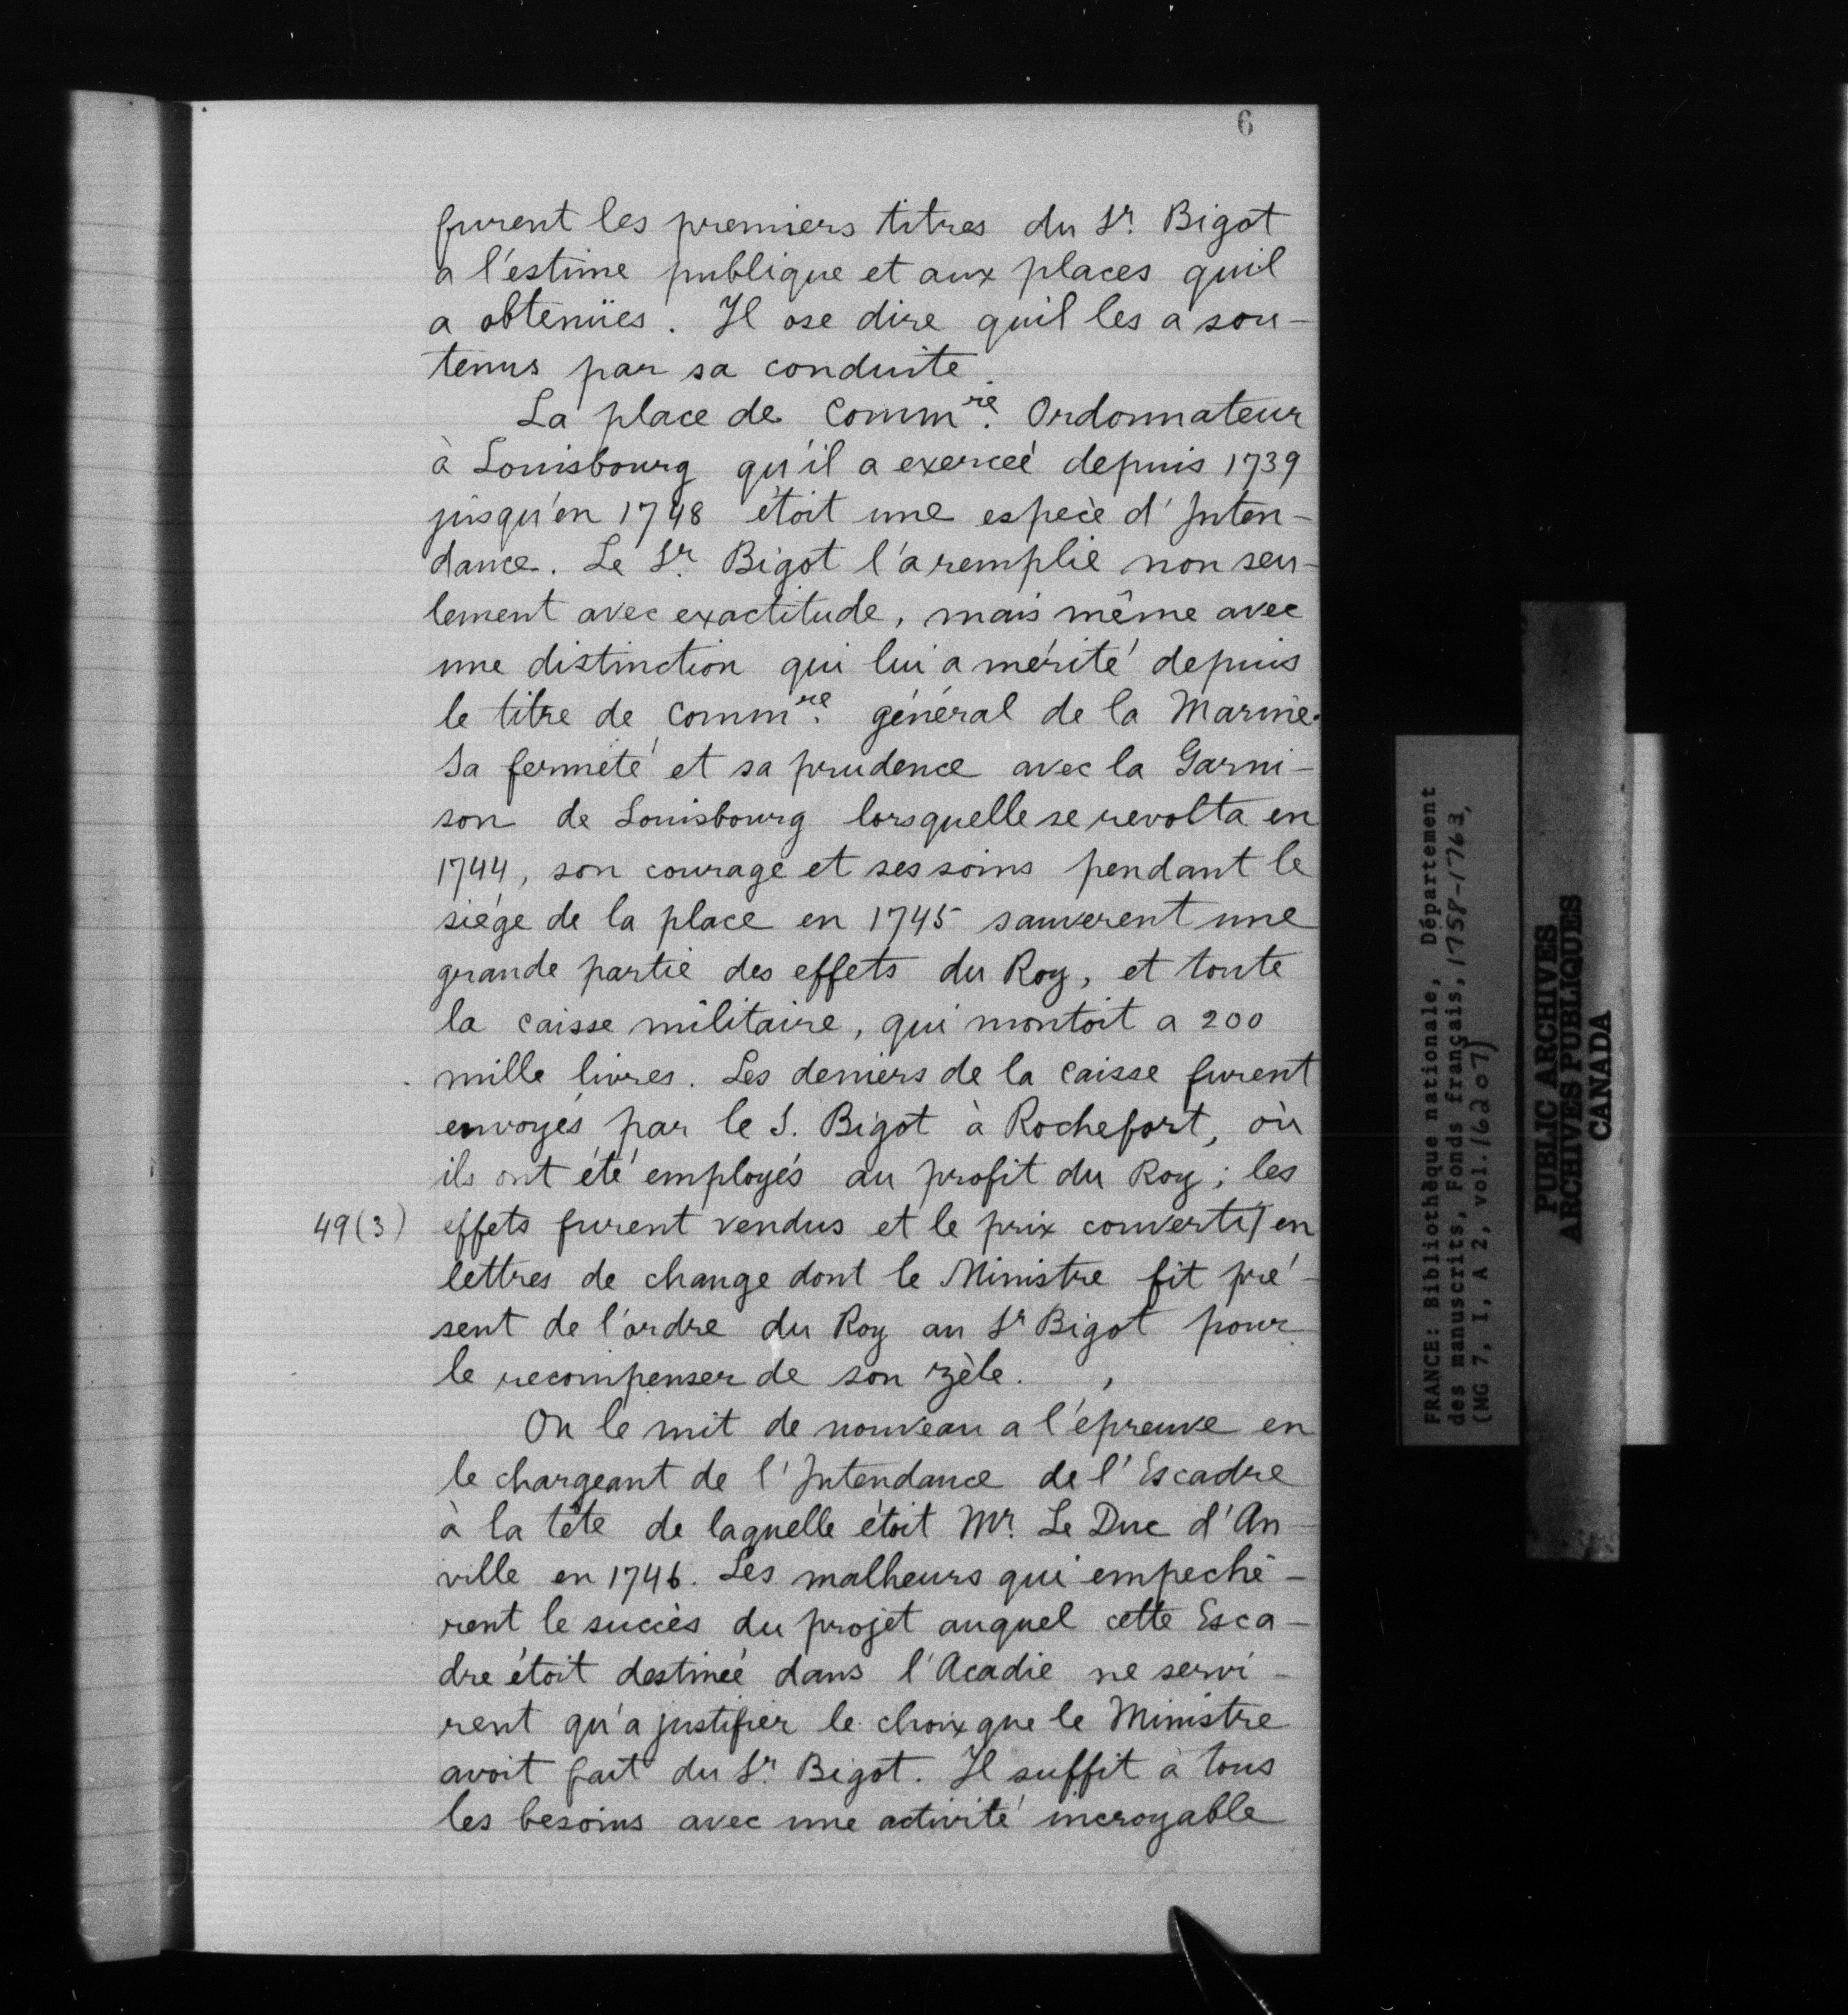 6
furent les premiers titres du Sr. Bigot
a l'estime publique et aux places quil
a obtenües. Il ose dire quil les a sou-
tenus par sa conduite.
La place de Commre. Ordonnateur
à Louisbourg qu'il a exerceé depuis 1739
jusqu'en 1748 étoit une espece d'Inten-
dance. Le Sr. Bigot l'a remplie non seu-
lement avec exactitude, mais même avec
une distinction qui lui a mérité depuis
le titre de Commre. général de la Marine.
Sa fermeté et sa prudence avec la Garni-
son de Louisbourg lorsquelle se revolta en
1744, son courage et ses soins pendant le
siége de la place en 1745 sauverent une
grande partie des effets du Roy, et toute
la caisse militaire, qui montoit a 200
mille livres. Les deniers de la caisse furent
envoyés par le S. Bigot à Rochefort, où
ils ont été employés au profit du Roy; les
49(3) effets furent vendus et le prix converti en
lettres de change dont le Ministre fit pré-
sent de l'ordre du Roy au Sr Bigot pour
le recompenser de son zèle.
On le mit de nouveau a l'épreuve en
le chargeant de l'Intendance de l'Escadre
à la tête de laquelle étoit Mr. Le Duc d'An-
ville en 1746. Les malheurs qui empeché-
rent le succès du projet auquel cette Esca-
dre étoit destineé dans l'Acadie ne servi-
rent qu'a justifier le choix que le Ministre
avoit fait du Sr. Bigot. Il suffit à tous
les besoins avec une activité incroyable
FRANCE: Bibliothèque nationale, Département
des manuscrits, Fonds français, 1758-1763,
(MG 7, I, A 2, vol. 16207)
PUBLIC ARCHIVES
ARCHIVES PUBLIQUES
CANADA